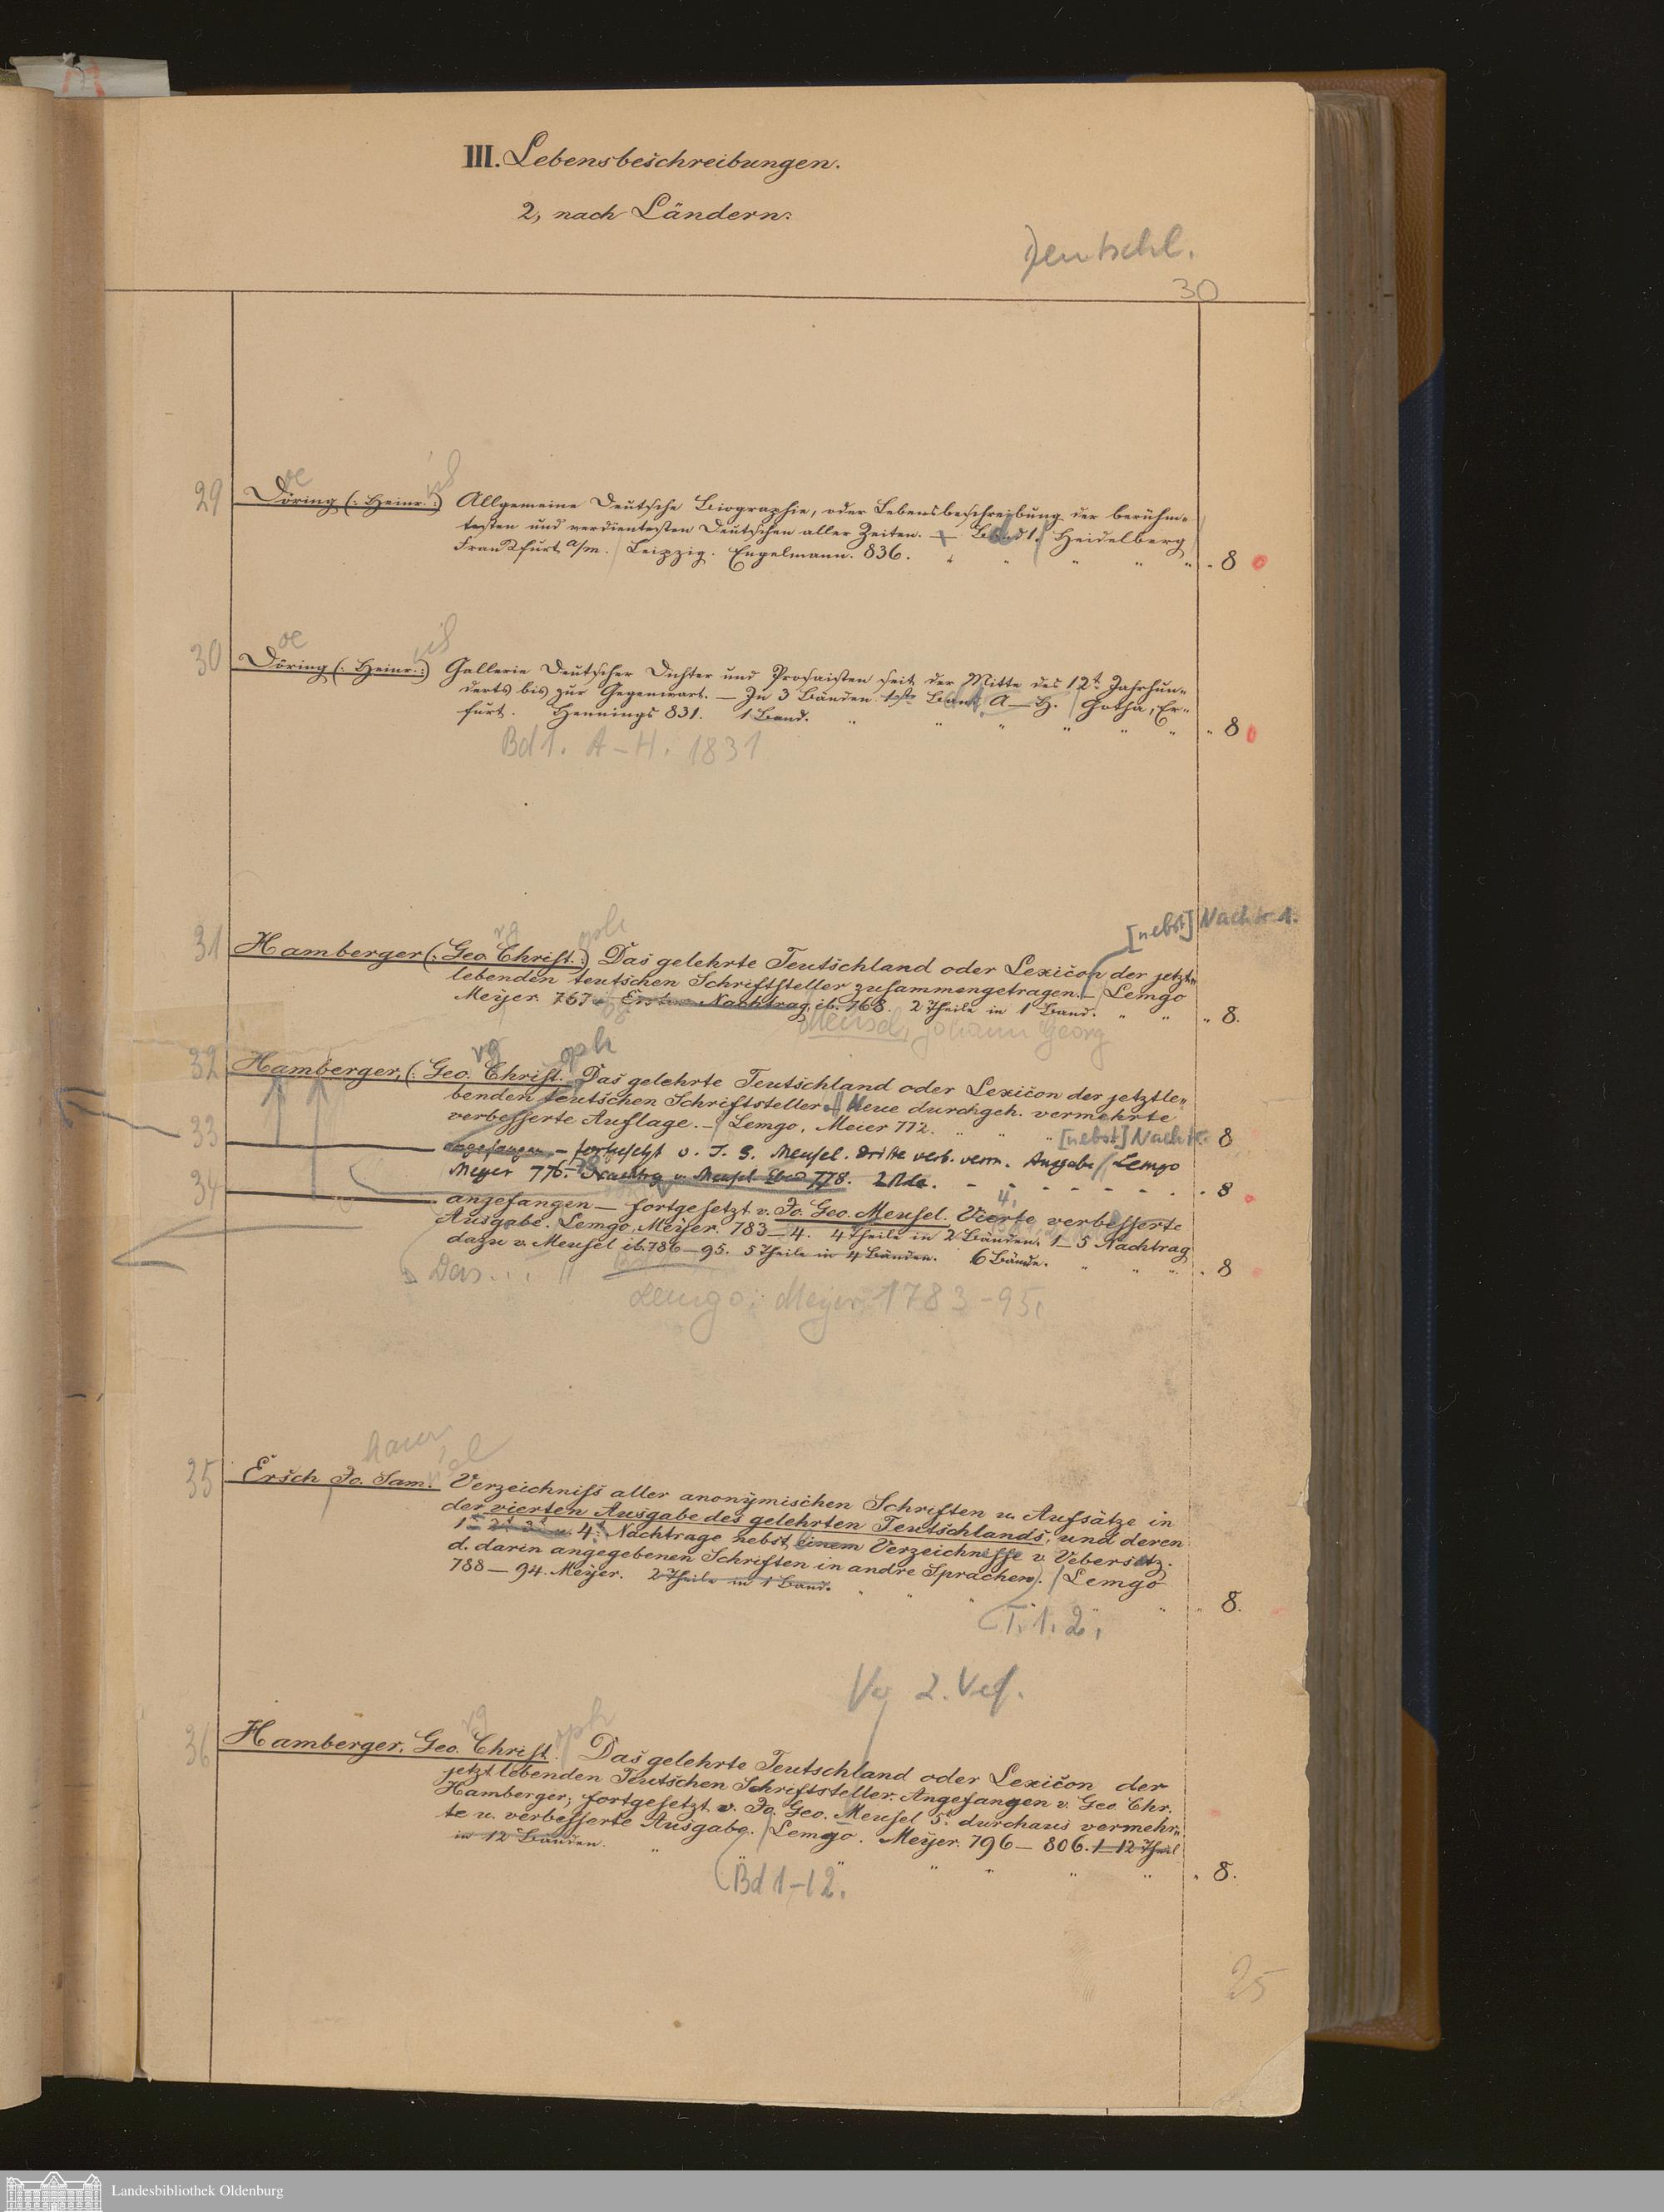 III. Lebensbeschreibungen.
2, nach Ländern.
Deutschl.
30
oe
29 Döring (: Heinr. :) Allgemeine Deutsche Biographie, oder Lebensbeschreibung der berühm-
testen und verdientesten Deutschen aller Zeiten. — Band 1. Heidelberg
Frankfurt a/m. Leipzig. Engelmann. 836. " " " " " 8
oe
30 Döring (: Heinr. :) Gallerie Deutscher Dichter und Prosaisten seit der Mitte des 12t. Jahrhun-
derts bis zur Gegenwart. — In 3 Bänden 1ster Band, A—H. Gotha, Er-
furt. Hennings 831. 1 Band. " " " " " " 8
Bd 1. A–H. 1831
[nebst] Nachtr. 1.
rg oph
31 Hamberger (: Geo. Christ. :) Das gelehrte Teutschland oder Lexicon der jetzt-
lebenden teutschen Schriftsteller zusammengetragen. — Lemgo
Meyer 767. Erster Nachtrag ib. 768. 2 Theile in 1 Band. " " " 8.
Meusel, Johann Georg
rg oph
32 Hamberger, (: Geo. Christ. Das gelehrte Teutschland oder Lexicon der jetztle-
benden teutschen Schriftsteller Neue durchgeh. vermehrte
verbesserte Auflage. — Lemgo, Meier 772. " " " [nebst] Nachtr. 8
33 angefangen — fortgesetzt v. J. G. Meusel. Dritte verb. verm. Ausgabe Lemgo
Meyer 776. — Nachtrg v. Meusel Ebd 778. 2 Bde. - - - - - - 8
4.
34 angefangen — fortgesetzt v. Jo. Geo. Meusel. Vierte verbesserte
Ausgabe. Lemgo, Meyer. 783—4. 4 Theile in 2 Bänden. 1—5 Nachtrag
dazu v. Meusel ib. 786—95. 5 Theile in 4 Bänden. 6 Bände. " " " 8
Das...
Lemgo: Meyer, 1783-95.
35 Ersch Jo. Sam. Verzeichniss aller anonymischen Schriften u. Aufsätze in
der vierten Ausgabe des gelehrten Teutschlands, und deren
1t. 2t. 3t. u. 4t. Nachtrage nebst einem Verzeichnisse v. Uebersetz.
d. darin angegebenen Schriften in andre Sprachen). Lemgo
788—94. Meyer. 2 Theile in 1 Band. " " " " " 8.
T. 1. 2.
2. Verf.
rg oph
36 Hamberger, Geo. Christ. Das gelehrte Teutschland oder Lexicon der
jetzt lebenden Teutschen Schriftsteller. Angefangen v. Geo. Chr.
Hamberger; fortgesetzt v. Jo. Geo. Meusel 5t. durchaus vermehr-
te u. verbesserte Ausgabe. Lemgo. Meyer. 796—806. 1—12 Theil
in 12 Bänden. " " " " " " " 8.
Bd 1-12.
25
Landesbibliothek Oldenburg